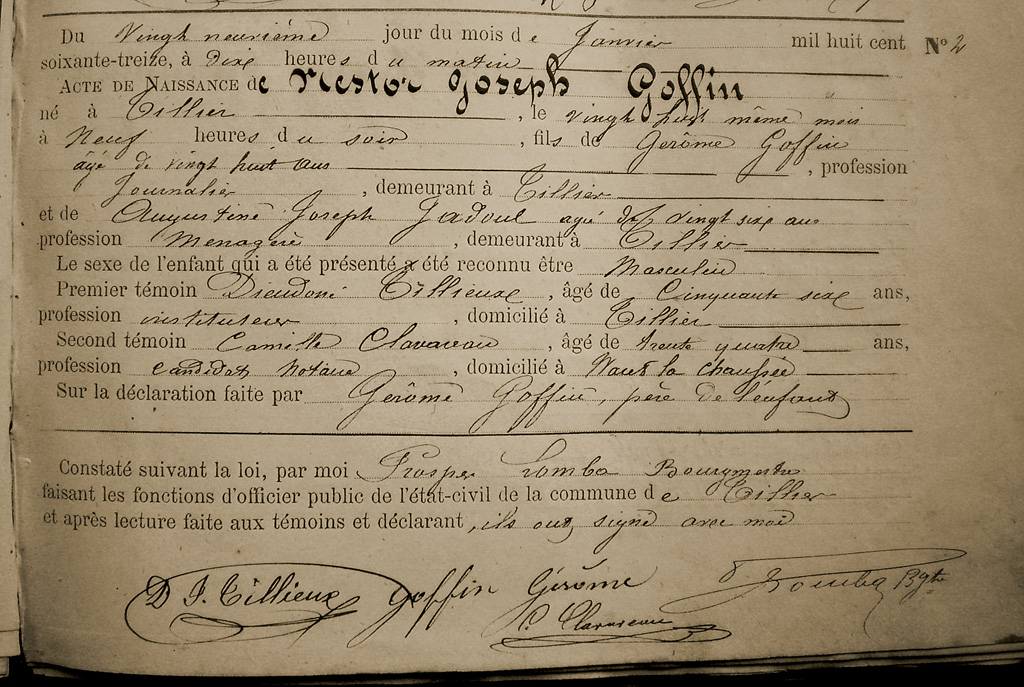 Du Vingt neuvième jour du mois de Janvier mil huit cent N° 2
soixante-treize, à dixe heures du matin
ACTE DE NAISSANCE de Nestor Joseph Goffin
né à Tillier, le vingt huit même mois
à Neuf heures du soir, fils de Gerôme Goffin
agé de vingt huit ans, profession
Journalier, demeurant à Tillier
et de Augustine Joseph Jadoul agé de vingt sixe ans
profession Menagère, demeurant à Tillier
Le sexe de l'enfant qui a été présenté a été reconnu être Masculin
Premier témoin Dieudoné Tillieux, âgé de Cinquante sixe ans,
profession instituteur, domicilié à Tillier
Second témoin Camille Clavareau, âgé de trente quatre ans,
profession candidat Notaire, domicilié à Hant la chaussée
Sur la déclaration faite par Gerôme Goffin, père de l'enfant
Constaté suivant la loi, par moi Prosper Lomba Bourgmestre
faisant les fonctions d'officier public de l'état-civil de la commune de Tillier
et après lecture faite aux témoins et déclarant, ils ont signé avec moi
D J. Tillieux Goffin Gérôme Lomba Bgtre
C. Clavareau